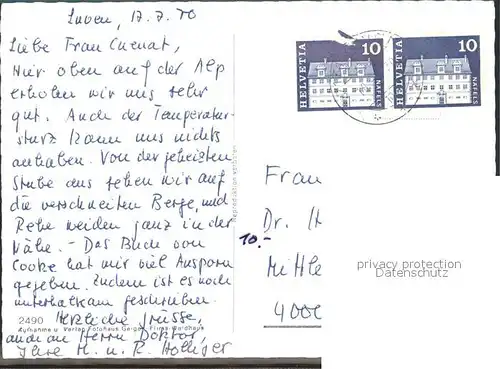 Luven, 17.7.70
Liebe Frau Cuenat,
Hier oben auf der Alp
erholen wir uns sehr
gut. Auch der Temperatur-
sturz kann uns nichts
anhaben. Von der geheizten
Stube aus sehen wir auf
die verschneiten Berge, und
Rehe weiden ganz in der
Nähe. – Das Buch von
Cooke hat mir viel Ansporn
gegeben. Zudem ist es noch
unterhaltsam geschrieben.
Herzliche Grüsse,
auch an Herrn Doktor,
Ihre M. u. R. Holliger
2490
Aufnahme u. Verlag Fotohaus Geiger, Flims-Waldhaus
Reproduktion verboten
HELVETIA 10 NÄFELS
HELVETIA 10 NÄFELS
Frau
Dr. H
10.-
Mittle
4000
privacy protection
Datenschutz